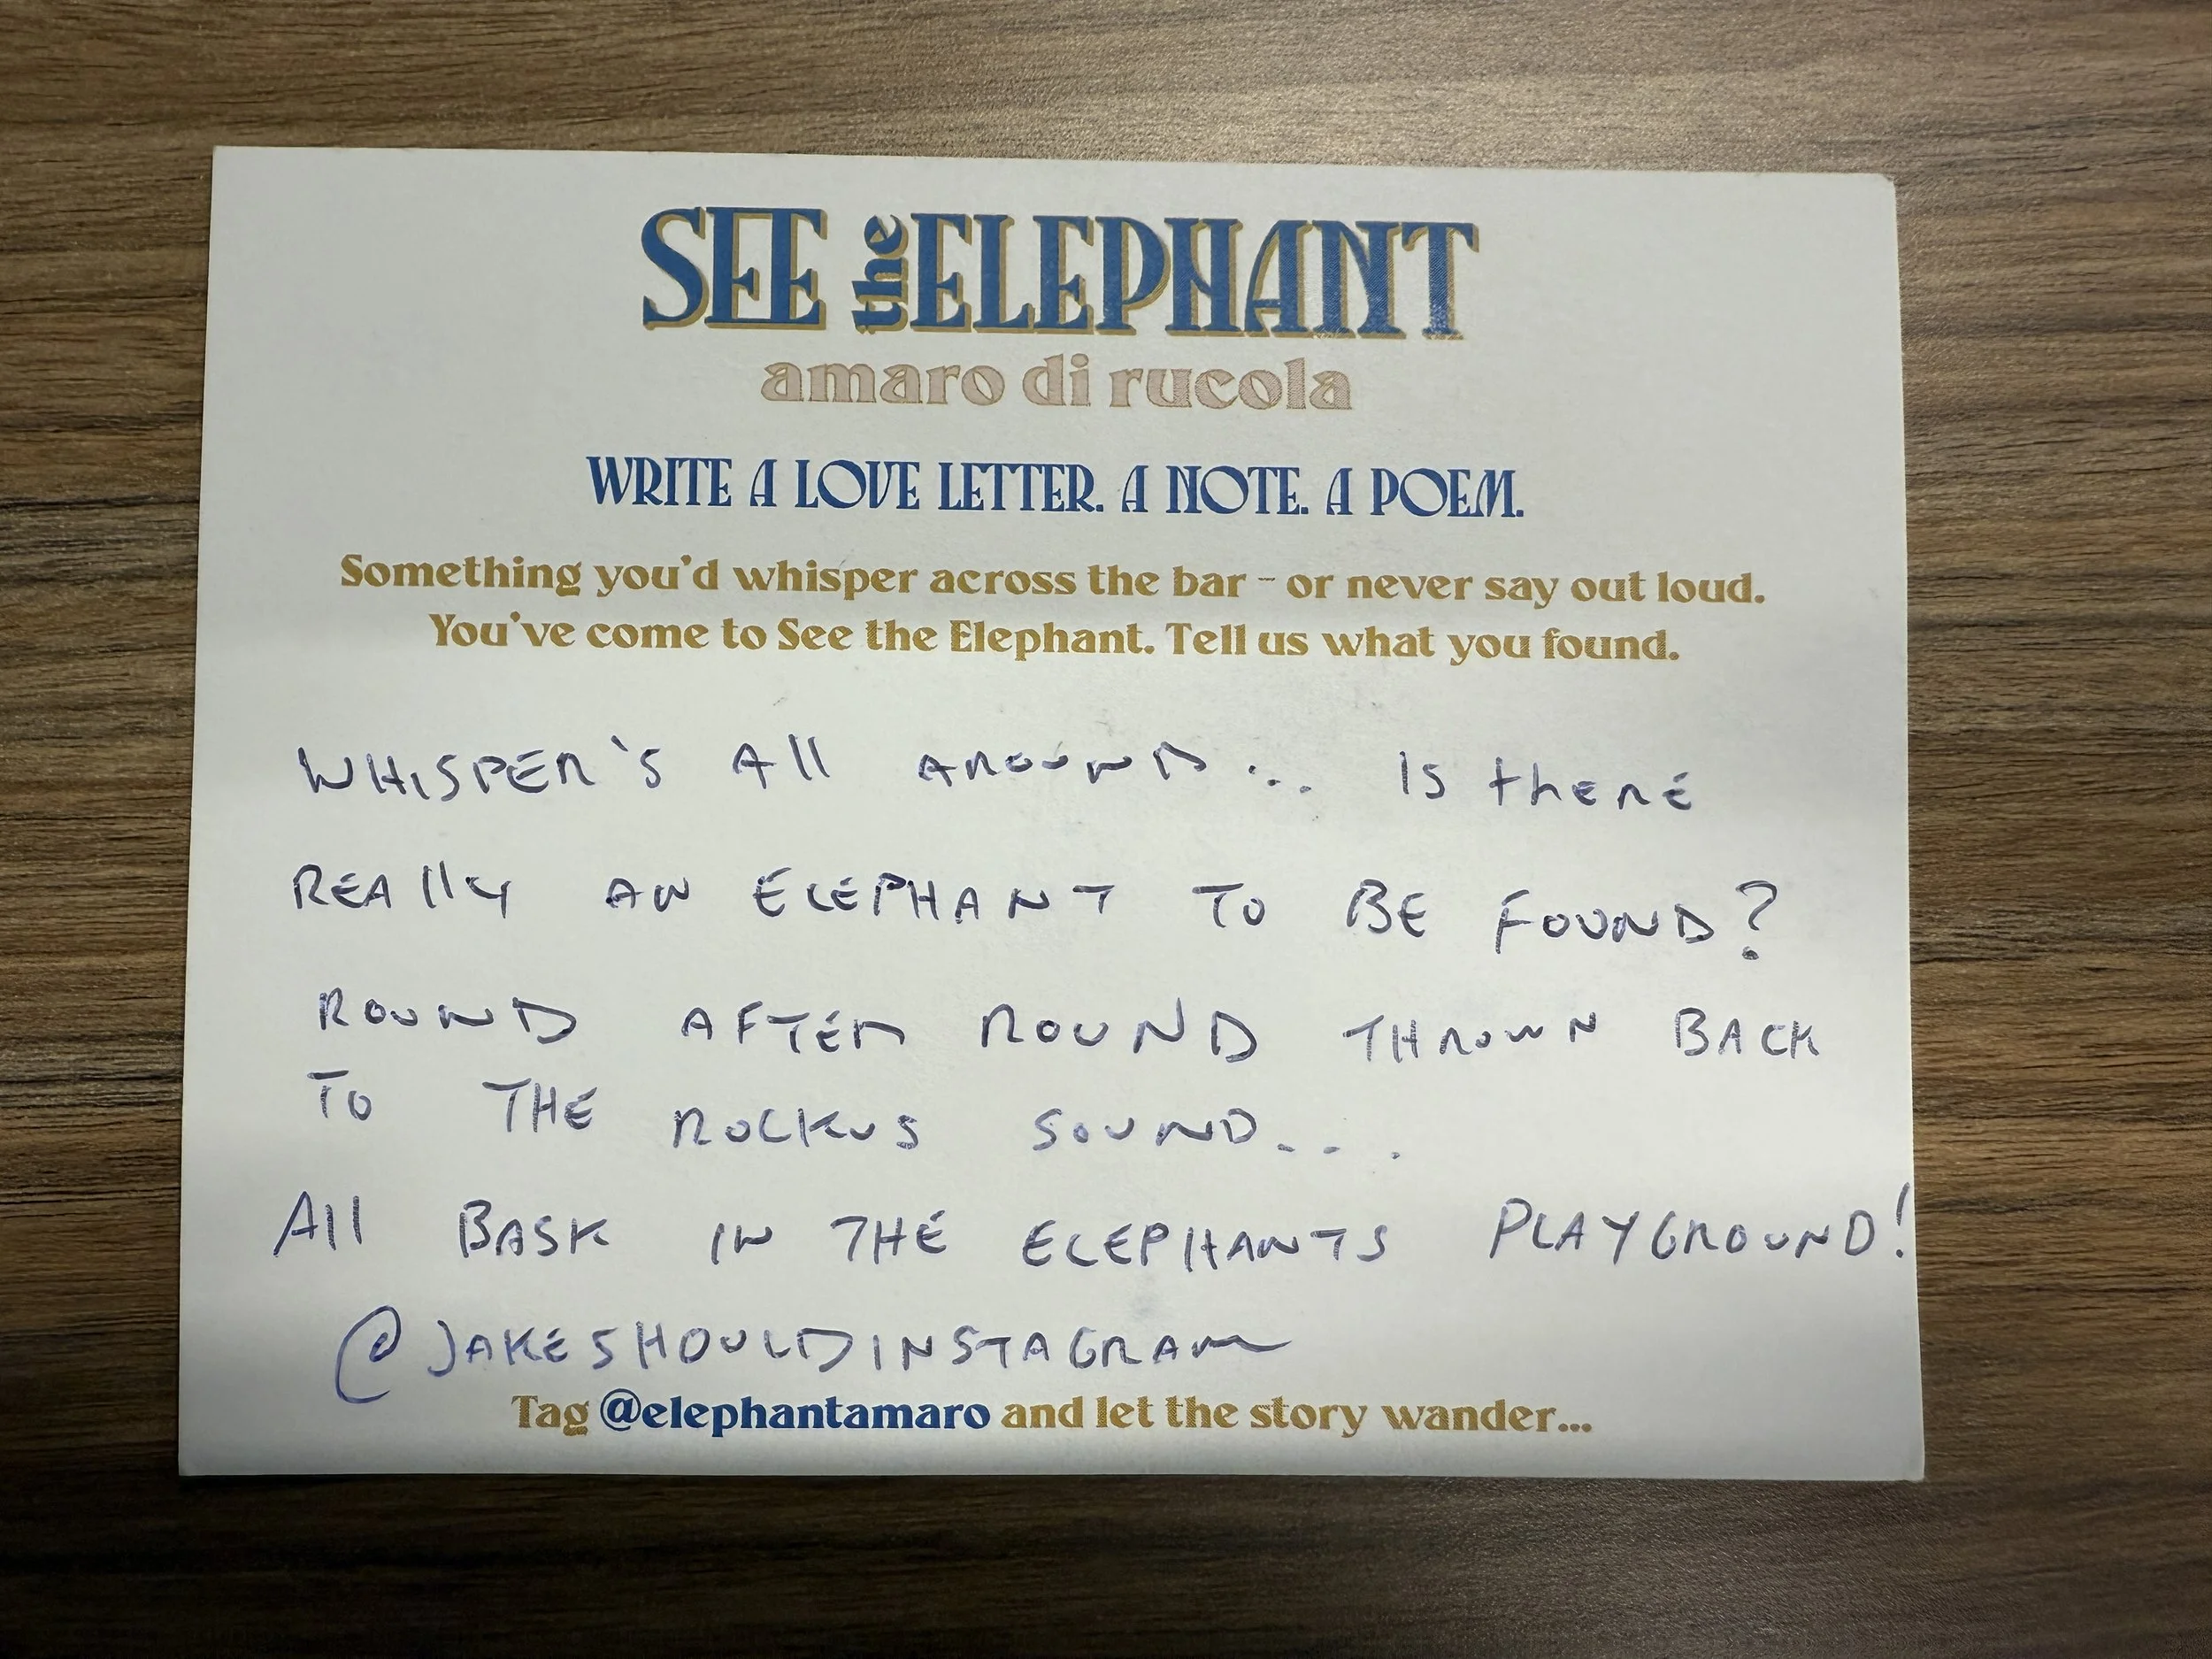 SEE the ELEPHANT
amaro di rucola
WRITE A LOVE LETTER. A NOTE. A POEM.
Something you'd whisper across the bar - or never say out loud.
You've come to See the Elephant. Tell us what you found.
WHISPER'S All AROUND... Is thERE
REAlly AN ELEPHANT TO BE FOUND?
ROUND AFTER ROUND THROWN BACK
TO THE ROCKUS SOUND...
All BASK IN THE ELEPHANTS PLAYGROUND!
@JAKESHOULDINSTAGRAM
Tag @elephantamaro and let the story wander...